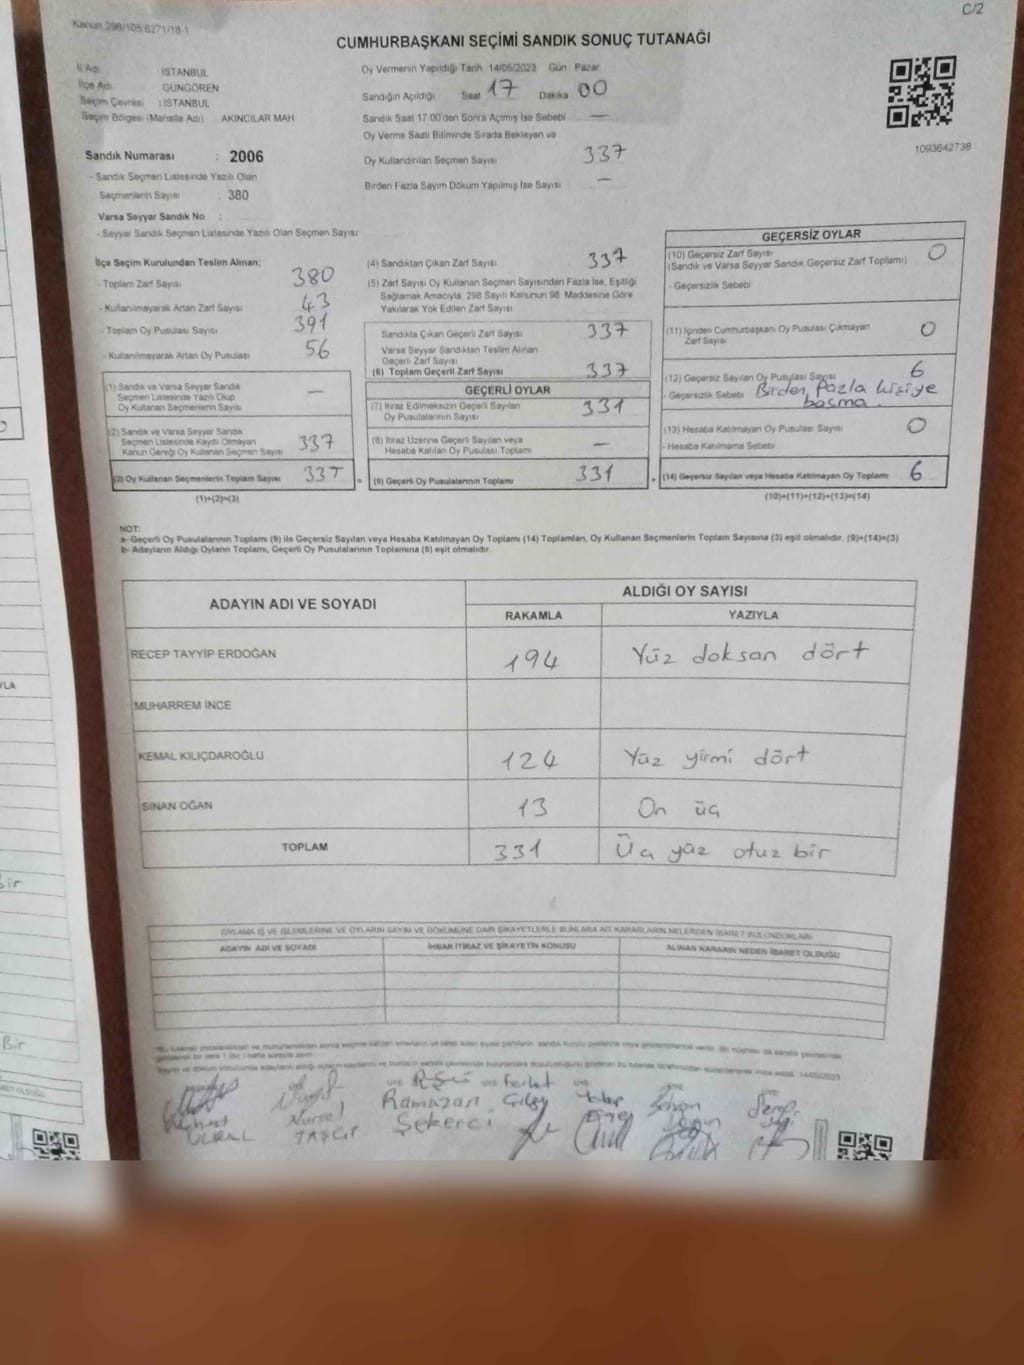 C/2
Kanun 298/105 6271/18-1
CUMHURBAŞKANI SEÇİMİ SANDIK SONUÇ TUTANAĞI
İl Adı : İSTANBUL
İlçe Adı GÜNGÖREN
Seçim Çevresi : İSTANBUL
Seçim Bölgesi (Mahalle Adı) AKINCILAR MAH
Sandık Numarası : 2006
- Sandık Seçmen Listesinde Yazılı Olan
Seçmenlerin Sayısı : 380
Varsa Seyyar Sandık No :
- Seyyar Sandık Seçmen Listesinde Yazılı Olan Seçmen Sayısı
Oy Vermenin Yapıldığı Tarih 14/05/2023 Gün : Pazar
Sandığın Açıldığı Saat 17 Dakika 00
Sandık Saat 17.00'den Sonra Açımış İse Sebebi —
Oy Verme Saati Bitiminde Sırada Bekleyen ve
Oy Kullandırılan Seçmen Sayısı 337
Birden Fazla Sayım Döküm Yapılmış İse Sayısı —
1093642738
İlçe Seçim Kurulundan Teslim Alınan;
- Toplam Zarf Sayısı 380
- Kullanılmayarak Artan Zarf Sayısı 43
- Toplam Oy Pusulası Sayısı 391
- Kullanılmayarak Artan Oy Pusulası 56
(1) Sandık ve Varsa Seyyar Sandık
Seçmen Listesinde Yazılı Olup
Oy Kullanan Seçmenlerin Sayısı —
(2) Sandık ve Varsa Seyyar Sandık
Seçmen Listesinde Kayıtlı Olmayan
Kanun Gereği Oy Kullanan Seçmen Sayısı 337
(3) Oy Kullanan Seçmenlerin Toplam Sayısı 337
(1)+(2)=(3)
(4) Sandıktan Çıkan Zarf Sayısı 337
(5) Zarf Sayısı Oy Kullanan Seçmen Sayısından Fazla İse, Eşitliği
Sağlamak Amacıyla, 298 Sayılı Kanunun 98. Maddesine Göre
Yakılarak Yok Edilen Zarf Sayısı
Sandıkta Çıkan Geçerli Zarf Sayısı 337
Varsa Seyyar Sandıktan Teslim Alınan
Geçerli Zarf Sayısı
(6) Toplam Geçerli Zarf Sayısı 337
GEÇERLİ OYLAR
(7) İtiraz Edilmeksizin Geçerli Sayılan
Oy Pusulalarının Sayısı 331
(8) İtiraz Üzerine Geçerli Sayılan veya
Hesaba Katılan Oy Pusulası Toplamı —
(9) Geçerli Oy Pusulalarının Toplamı 331
GEÇERSİZ OYLAR
(10) Geçersiz Zarf Sayısı 0
(Sandık ve Varsa Seyyar Sandık Geçersiz Zarf Toplamı)
- Geçersizlik Sebebi
(11) İçinden Cumhurbaşkanı Oy Pusulası Çıkmayan
Zarf Sayısı 0
(12) Geçersiz Sayılan Oy Pusulası Sayısı 6
- Geçersizlik Sebebi Birden fazla kişiye
basma.
(13) Hesaba Katılmayan Oy Pusulası Sayısı 0
- Hesaba Katılmama Sebebi
(14) Geçersiz Sayılan veya Hesaba Katılmayan Oy Toplamı 6
(10)+(11)+(12)+(13)=(14)
NOT:
a- Geçerli Oy Pusulalarının Toplamı (9) ile Geçersiz Sayılan veya Hesaba Katılmayan Oy Toplamı (14) Toplamları, Oy Kullanan Seçmenlerin Toplam Sayısına (3) eşit olmalıdır. (9)+(14)=(3)
b- Adayların Aldığı Oyların Toplamı, Geçerli Oy Pusulalarının Toplamına (9) eşit olmalıdır.
ADAYIN ADI VE SOYADI ALDIĞI OY SAYISI
RAKAMLA YAZIYLA
RECEP TAYYİP ERDOĞAN 194 Yüz doksan dört
MUHARREM İNCE
KEMAL KILIÇDAROĞLU 124 Yüz yirmi dört
SİNAN OĞAN 13 On üç
TOPLAM 331 Üç yüz otuz bir
OYLAMA İŞ VE İŞLEMLERİNE VE OYLARIN SAYIM VE DÖKÜMÜNE DAİR ŞİKAYETLERLE BUNLARA AİT KARARLARIN NELERDEN İBARET BULUNDUKLARI
ADAYIN ADI VE SOYADI İHBAR İTİRAZ VE ŞİKAYETİN KONUSU ALINAN KARARIN NEDEN İBARET OLDUĞU
14/05/2023
Ramazan
Şekerci
Nursel